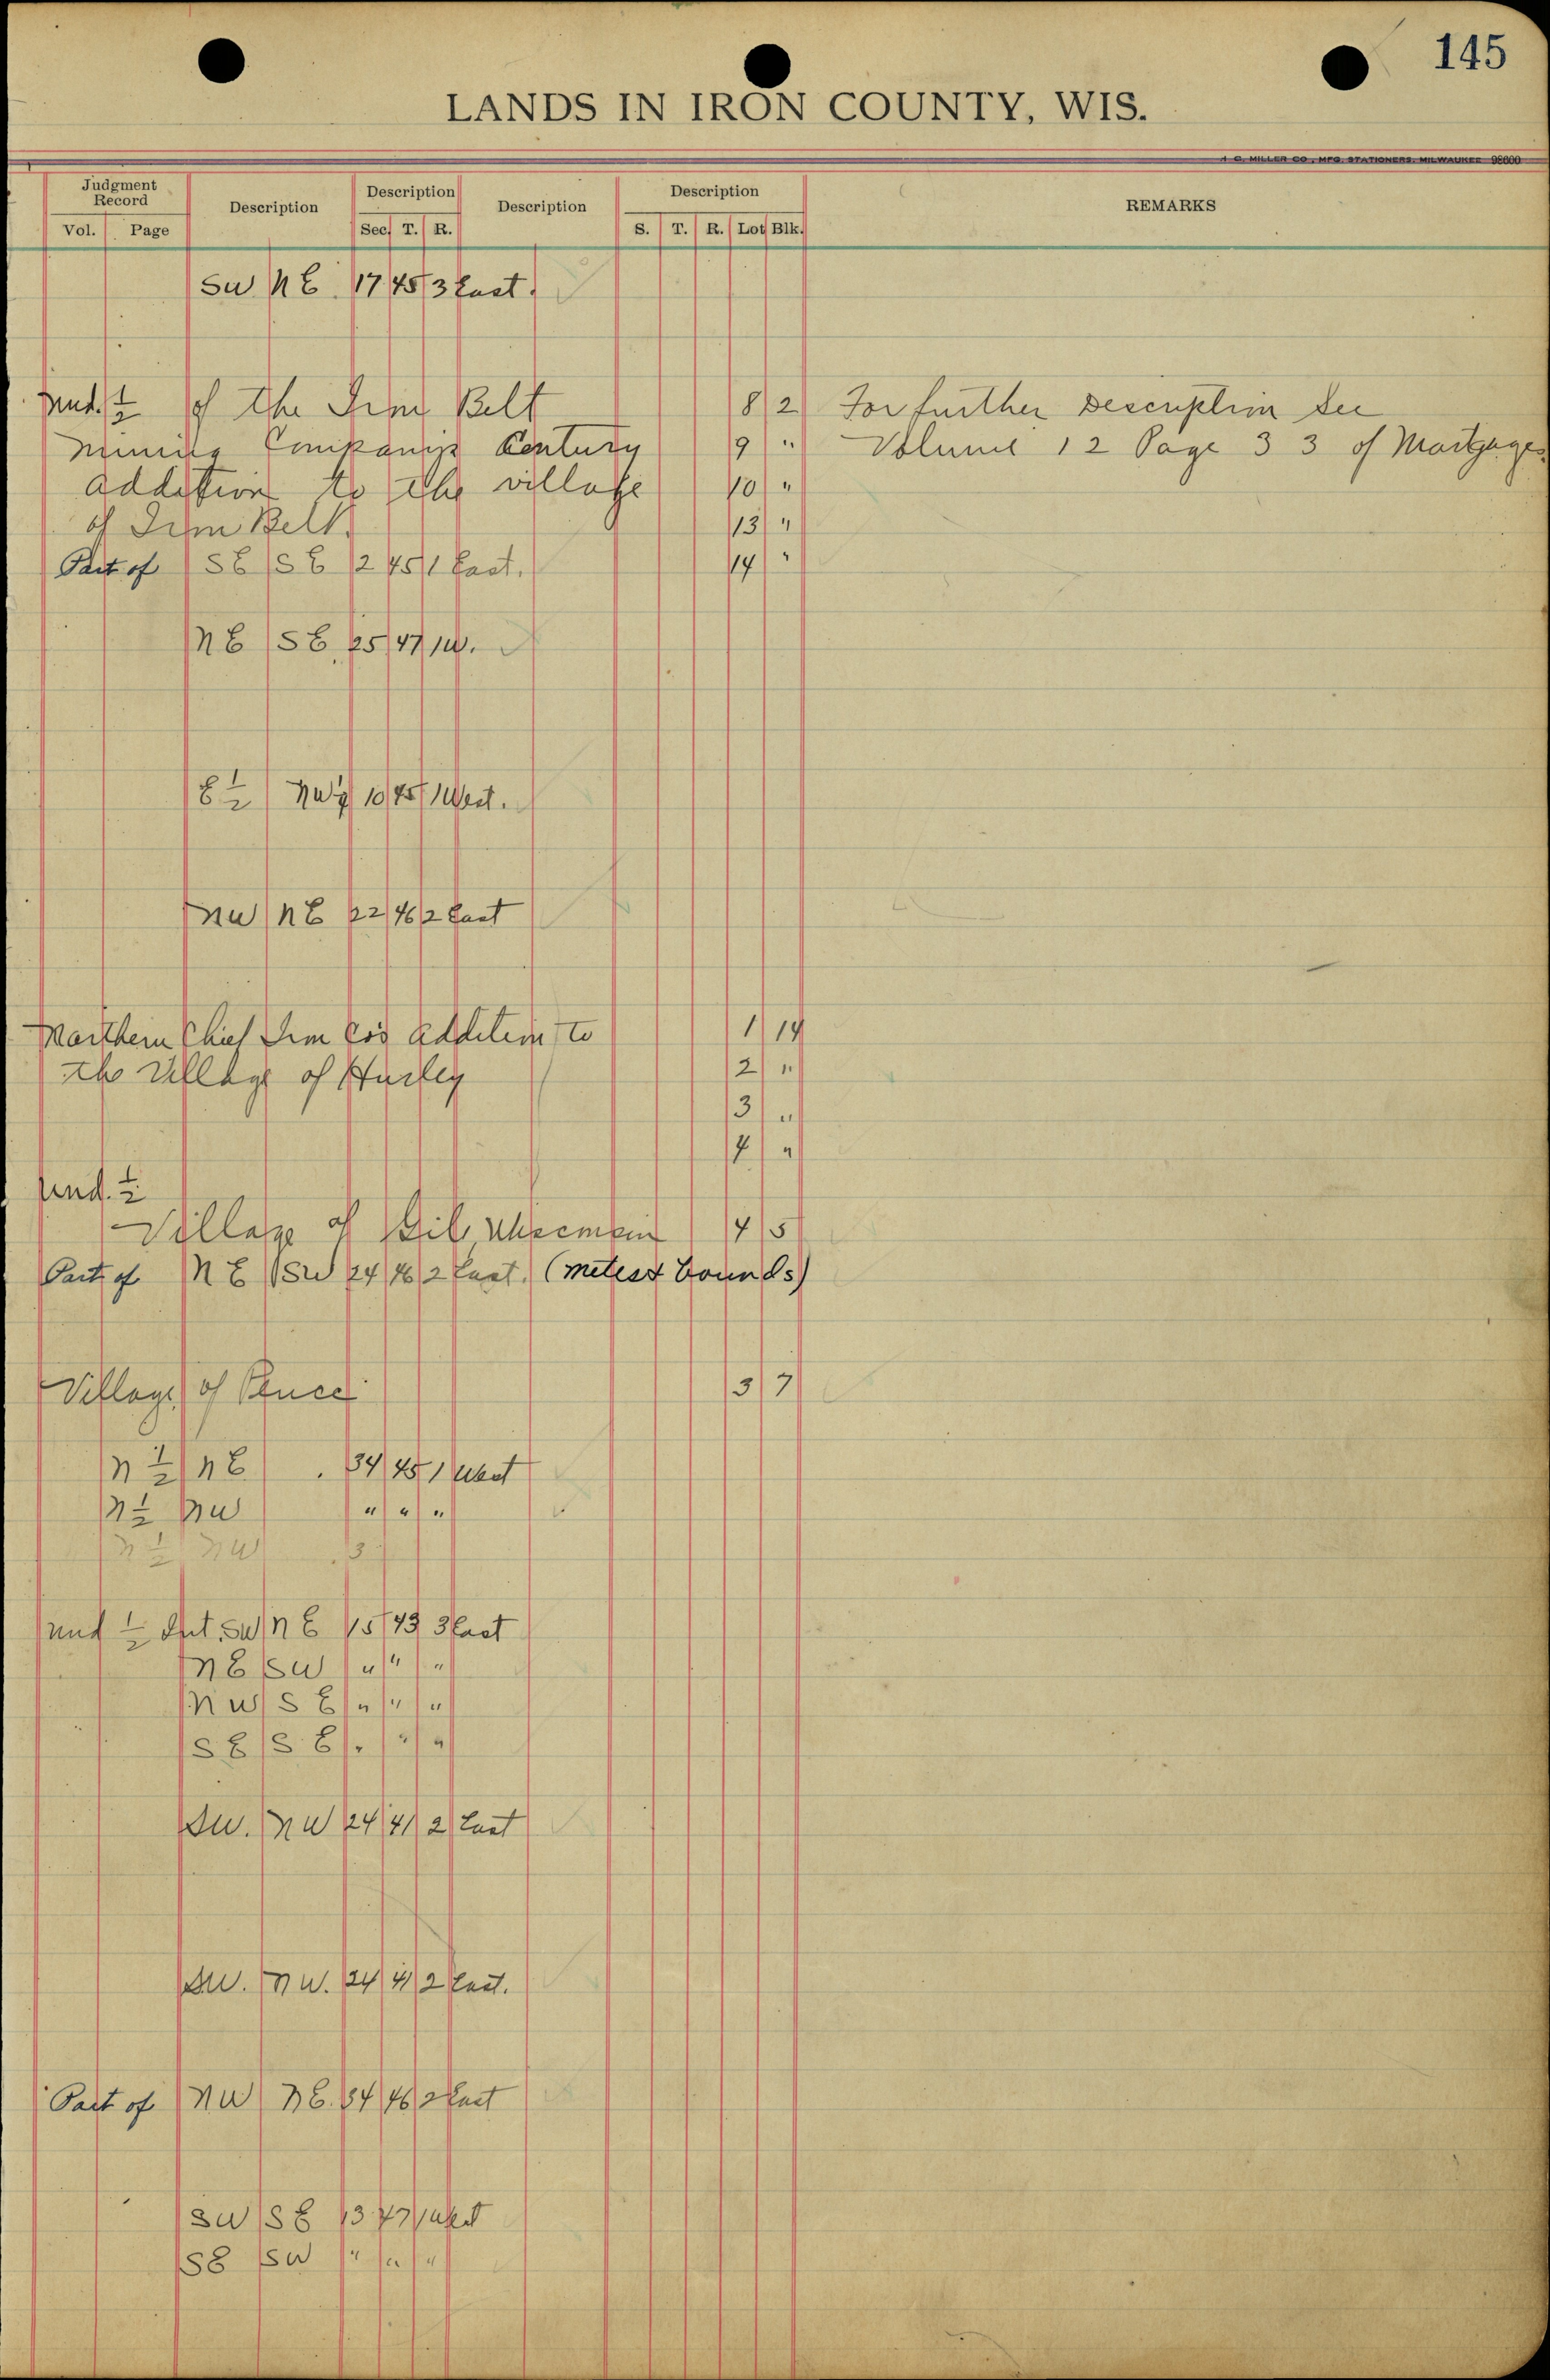 145
LANDS IN IRON COUNTY, WIS.
A. C. MILLER CO., MFG. STATIONERS, MILWAUKEE 98600
Judgment Record Description Description Description Description REMARKS
Vol. Page Sec. T. R. S. T. R. Lot Blk.
SW NE 17 45 3 East.
und. 1/2 of the Iron Belt 8 2 For further Description See
Mining Companys Century 9 " Volume 12 Page 33 of Mortgages
addition to the village 10 "
of Iron Belt. 13 "
Part of SE SE 12 45 1 East. 14 "
NE SE 25 47 1W.
E 1/2 NW 1/4 10 45 1 West.
NW NE 22 46 2 East
Northern Chief Iron Co's Addition to 1 14
the Village of Hurley 2 "
3 "
4 "
und. 1/2
Village of 4 5
Part of NE SW 24 46 2 East. (metes & bounds)
Village of Pence 3 7
N 1/2 NE 34 45 1 West
N 1/2 NW " " "
N 1/2 NW 3
und 1/2 Int. SW NE 15 43 3 East
NE SW " " "
NW SE " " "
SE SE " " "
SW. NW 24 41 2 East
SW. NW. 24 41 2 East.
Part of NW NE. 34 46 2 East
SW SE 13 47 1 West
SE SW " " "